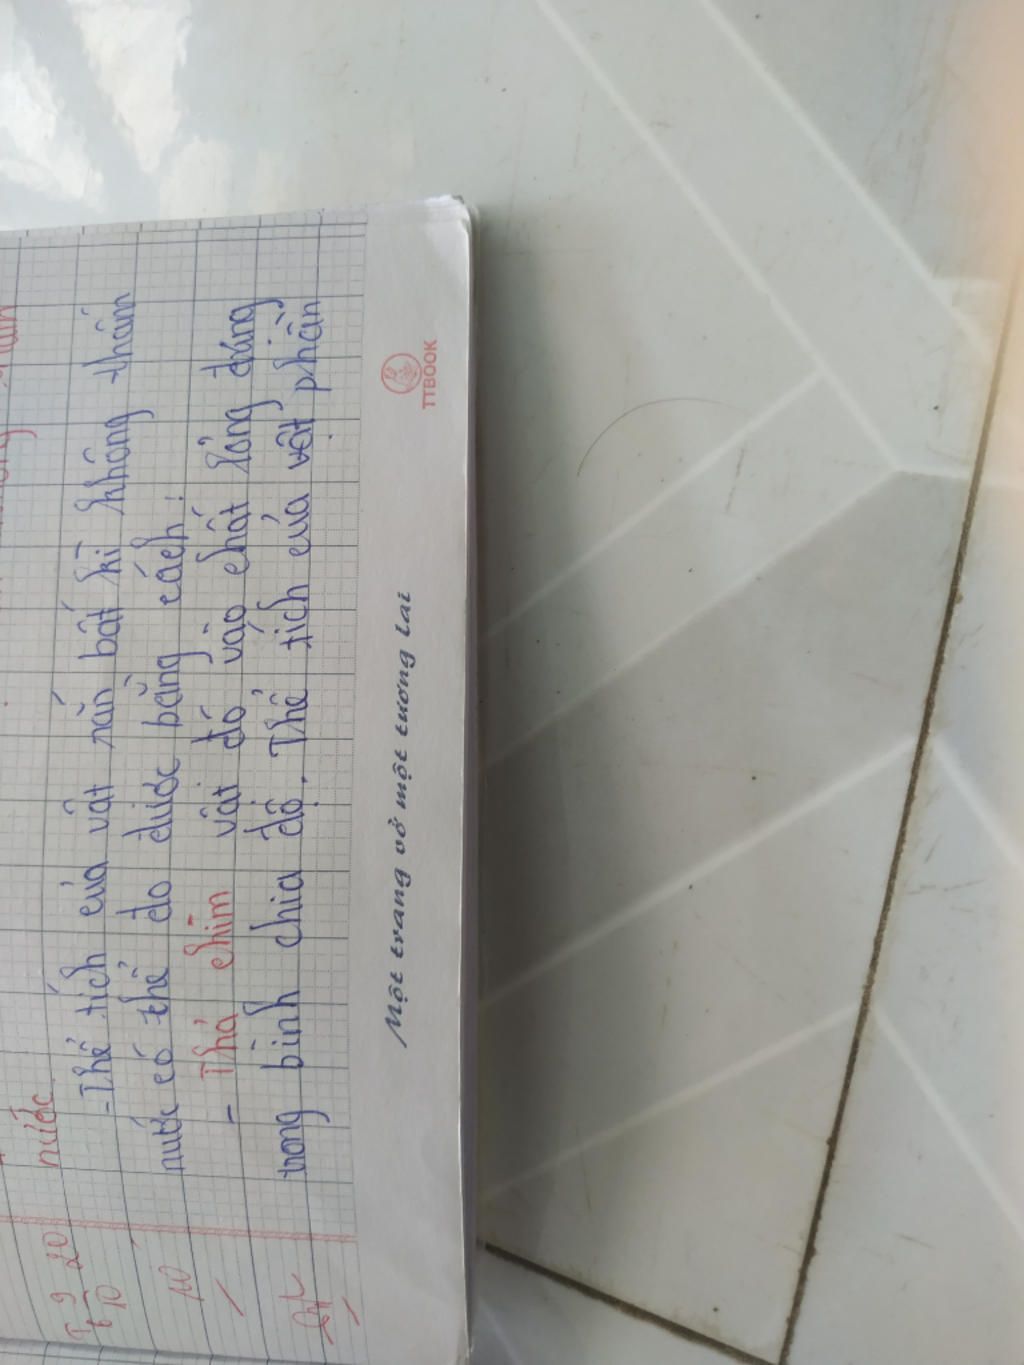 nước
-Thể tích của vật rắn bất kì không thấm
nước có thể đo được bằng cách:
- Thả chìm vật đó vào chất lỏng đựng
trong bình chia độ. Thể tích của vật phần
T6 9/10 20
Một trang vở một tương lai
TTBOOK